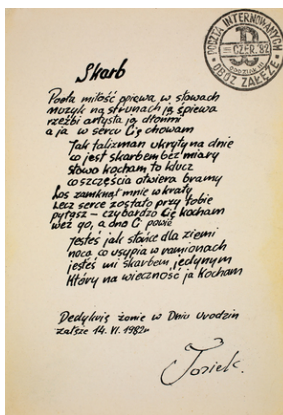 Skarb
POCZTA INTERNOWANYCH
CZER. '82
OBÓZ ZAŁĘŻE
Poeta miłość opiewa w słowach
muzyk na strunach ją śpiewa
rzeźbi artysta ją dłońmi
a ja w sercu Cię chowam
Jak talizman ukryty na dnie
co jest skarbem bez miary
słowo kocham to klucz
co szczęścia otwiera bramy
Los zamknął mnie w kraty
lecz serce zostało przy Tobie
pytasz – czy bardzo Cię kocham
weź go, a ono Ci powie
Jesteś jak słońce dla ziemi
nocą co usypia w ramionach
jesteś mi skarbem jedynym
Który na wieczność ja Kocham
Dedykuję żonie w Dniu Urodzin
Załęże 14. VI. 1982r